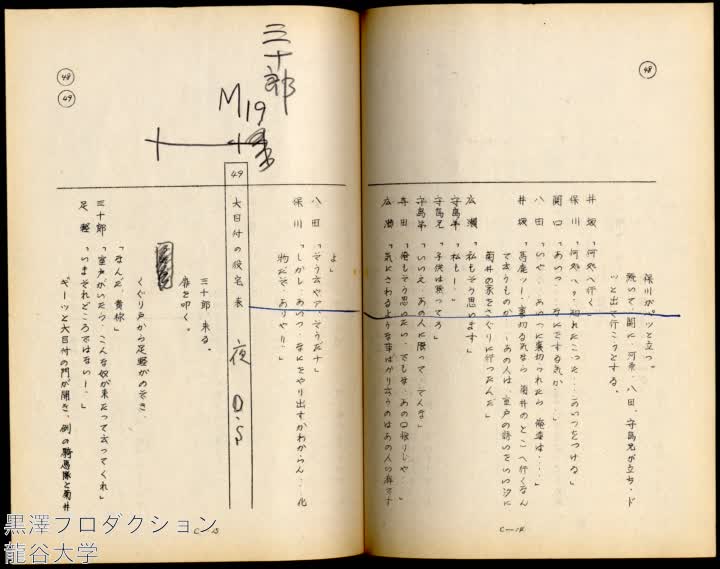 48
保川がパッと立つ。
続いて、関口、河原、八田、守島兄が立ち、ド
ッと出て行こうとする。
井坂「何処へ行く」
保川「何処へ？ 知れたこった…あいつをつける」
関口「あいつ…なにをする気か…」
八田「いや…あいつに裏切られたら、俺達は…」
井坂「馬鹿ッ！裏切る気なら、菊井のとこへ行くなん
て云うものか…あの人は、室戸の誘いをいいことに
菊井の家をさぐりに行ったんだ」
広瀬「私もそう思います」
守島弟「私も…」
守島兄「子供は黙ってろ」
守島弟「いいえ、あの人に限って、てんな」
寺田「俺もそう思いたい、でもな、あの口振りじゃ…」
広瀬「気にさわるような事ばかり云うのはあの人の癖です
C-14
よ」
八田「そう云やア、そうだナ」
保川「しかし、あいつ、なにをやり出すかわからん…化
物だぞ、ありゃ！」
三十郎
M19
49
大目付の役宅 表
夜 O.S
三十郎、来る。
扉を叩く。
くぐり戸から足軽がのぞき、
「なんだ、貴様」
三十郎「室戸がいたら、こんな奴が来たって云ってくれ」
足軽「いまそれどころではない！」
ギーッと大目付の門が開き、例の騎馬隊と菊井
48
49
C-15
黒澤プロダクション
龍谷大学